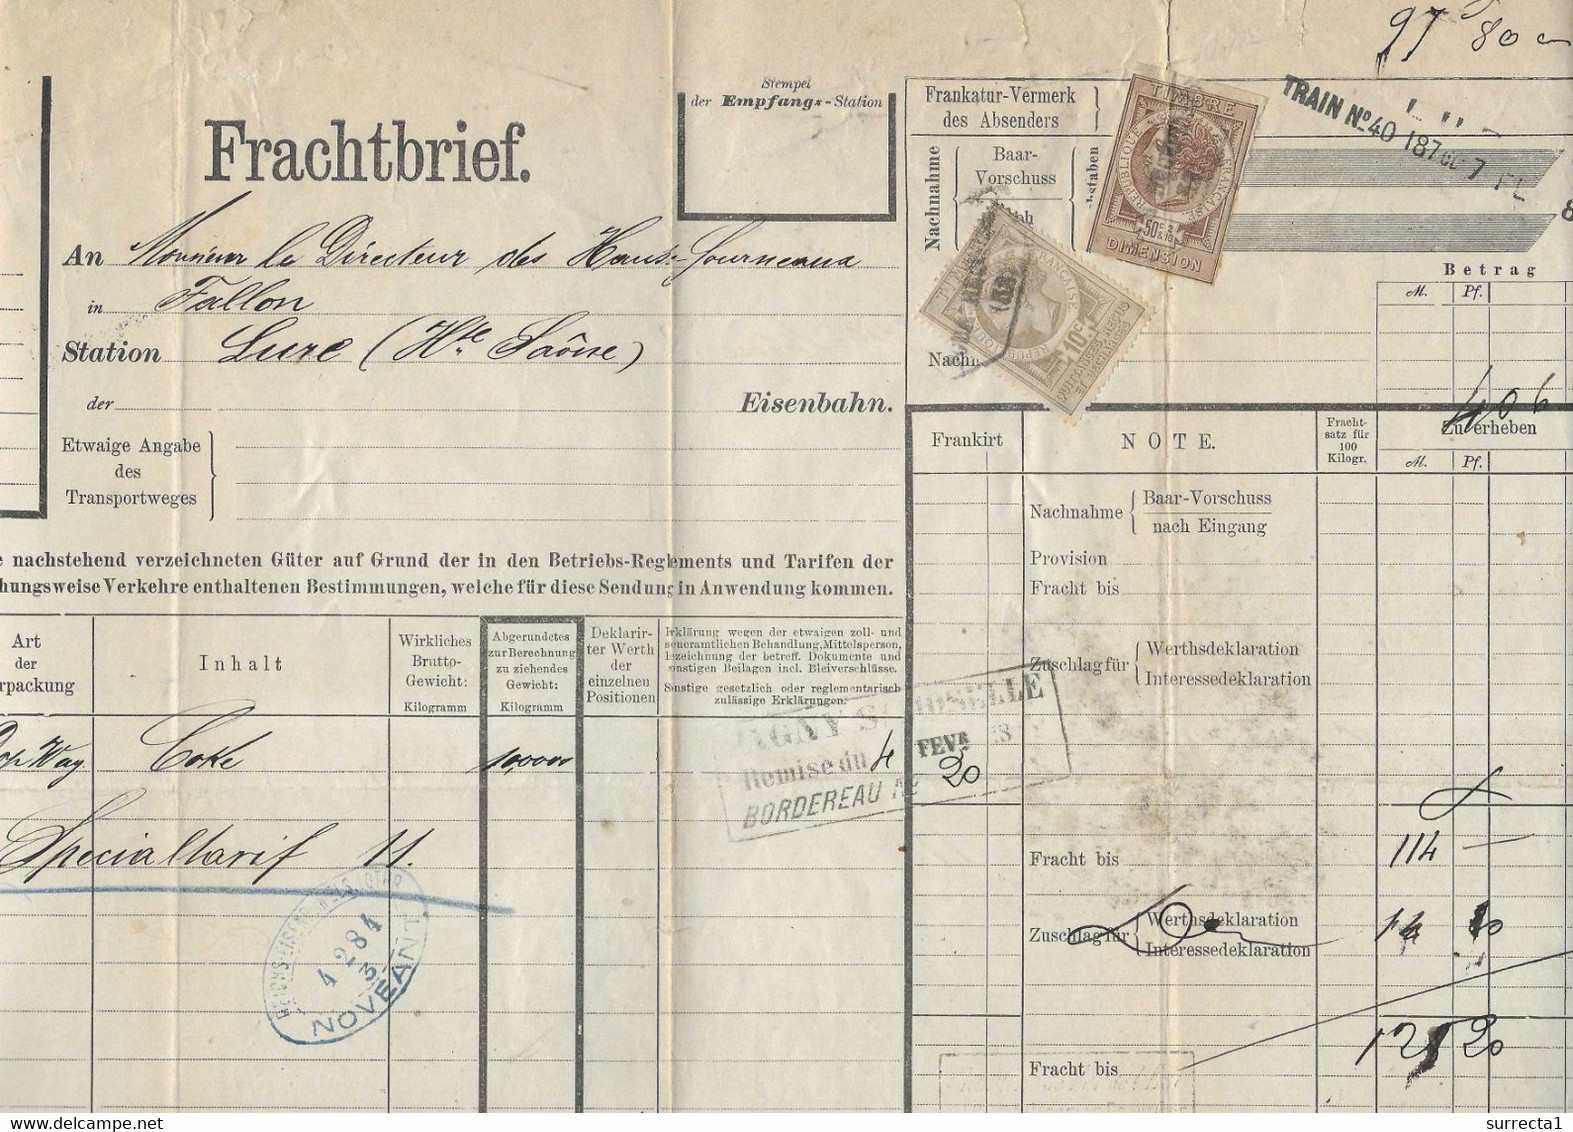 97 f 80 c
Stempel
der Empfangs-Station
Frankatur-Vermerk
des Absenders
TIMBRE
REPUBLIQUE FRANÇAISE
50 c 2/10
DIMENSION
TRAIN No 40 187
Frachtbrief.
Nachnahme
Baar-
Vorschuss
An Monsieur le Directeur des Hauts-Fourneaux
in Fallon
Station Lure (Hte Saône)
der Eisenbahn.
10 c
Betrag
M. Pf.
406
Etwaige Angabe
des
Transportweges
Frankirt
NOTE.
Fracht-
satz für
100
Kilogr.
Zu erheben
M. Pf.
Nachnahme Baar-Vorschuss
nach Eingang
Provision
Fracht bis
nachstehend verzeichneten Güter auf Grund der in den Betriebs-Reglements und Tarifen der
hungsweise Verkehre enthaltenen Bestimmungen, welche für diese Sendung in Anwendung kommen.
Art
der
rpackung
Inhalt
Wirkliches
Brutto-
Gewicht:
Kilogramm
Abgerundetes
zur Berechnung
zu ziehendes
Gewicht:
Kilogramm
Deklarir-
ter Werth
der
einzelnen
Positionen
Erklärung wegen der etwaigen zoll- und
steueramtlichen Behandlung, Mittelsperson,
Bezeichnung der betreff. Dokumente und
sonstigen Beilagen incl. Bleiverschlüsse.
Sonstige gesetzlich oder reglementarisch
zulässige Erklärungen.
Zuschlag für Werthsdeklaration
Interessedeklaration
Wag. Coke 10,000
Remise du 4 FEVR
BORDEREAU No 20
Specialtarif 11.
4 2 84
NOVEANT
Fracht bis 114 —
Zuschlag für Werthsdeklaration
Interessedeklaration
Fracht bis
20
surrecta1